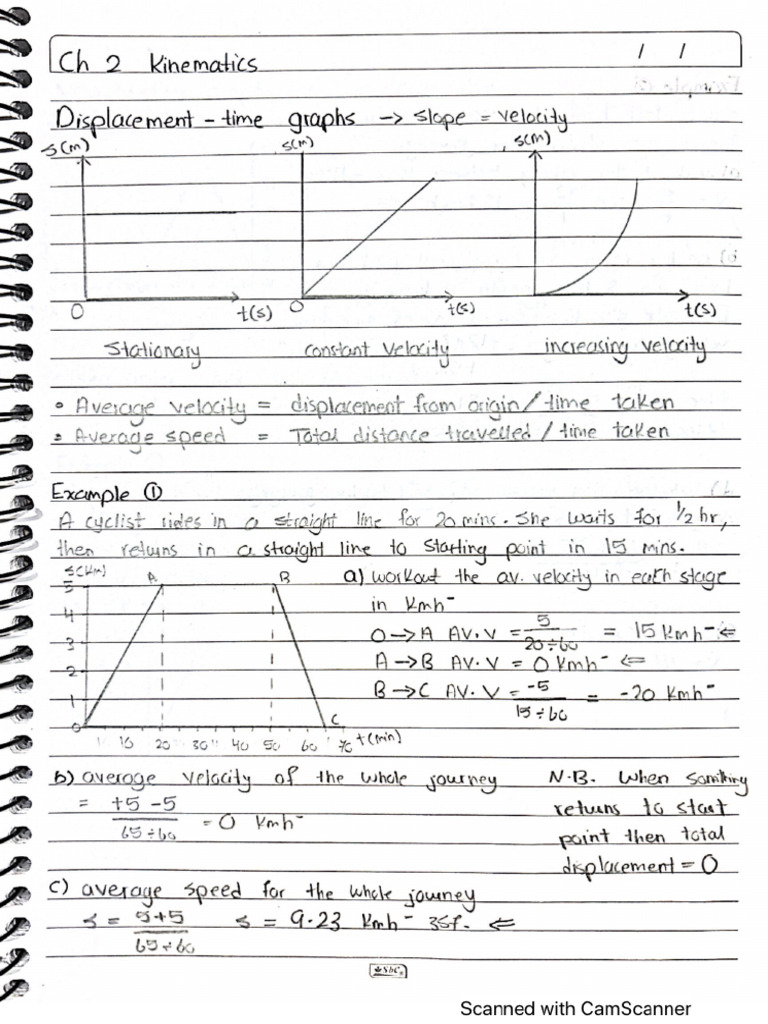 Ch 2 Kinematics / /
Displacement - time graphs -> slope = velocity
s(m) s(m) s(m)
0 t(s) 0 t(s) t(s)
Stationary constant velocity increasing velocity
• Average velocity = displacement from origin / time taken
• Average speed = Total distance travelled / time taken
Example ①
A cyclist rides in a straight line for 20 mins. She waits for 1/2 hr,
then returns in a straight line to starting point in 15 mins.
s(Km) A B
5
4
3
2
1
0 C
10 20 30 40 50 60 70 t(min)
a) workout the av. velocity in each stage
in Kmh⁻
O → A AV. V = 5 / 20÷60 = 15 Kmh⁻ ⇐
A → B AV. V = 0 Kmh⁻ ⇐
B → C AV. V = -5 / 15÷60 = -20 Kmh⁻
b) average velocity of the whole journey
= +5 -5 / 65÷60 = 0 Kmh⁻
N.B. When somthing
returns to start
point then total
displacement = 0
c) average speed for the whole journey
s = 5+5 / 65÷60 s = 9.23 Kmh⁻ 3sf. ⇐
Scanned with CamScanner